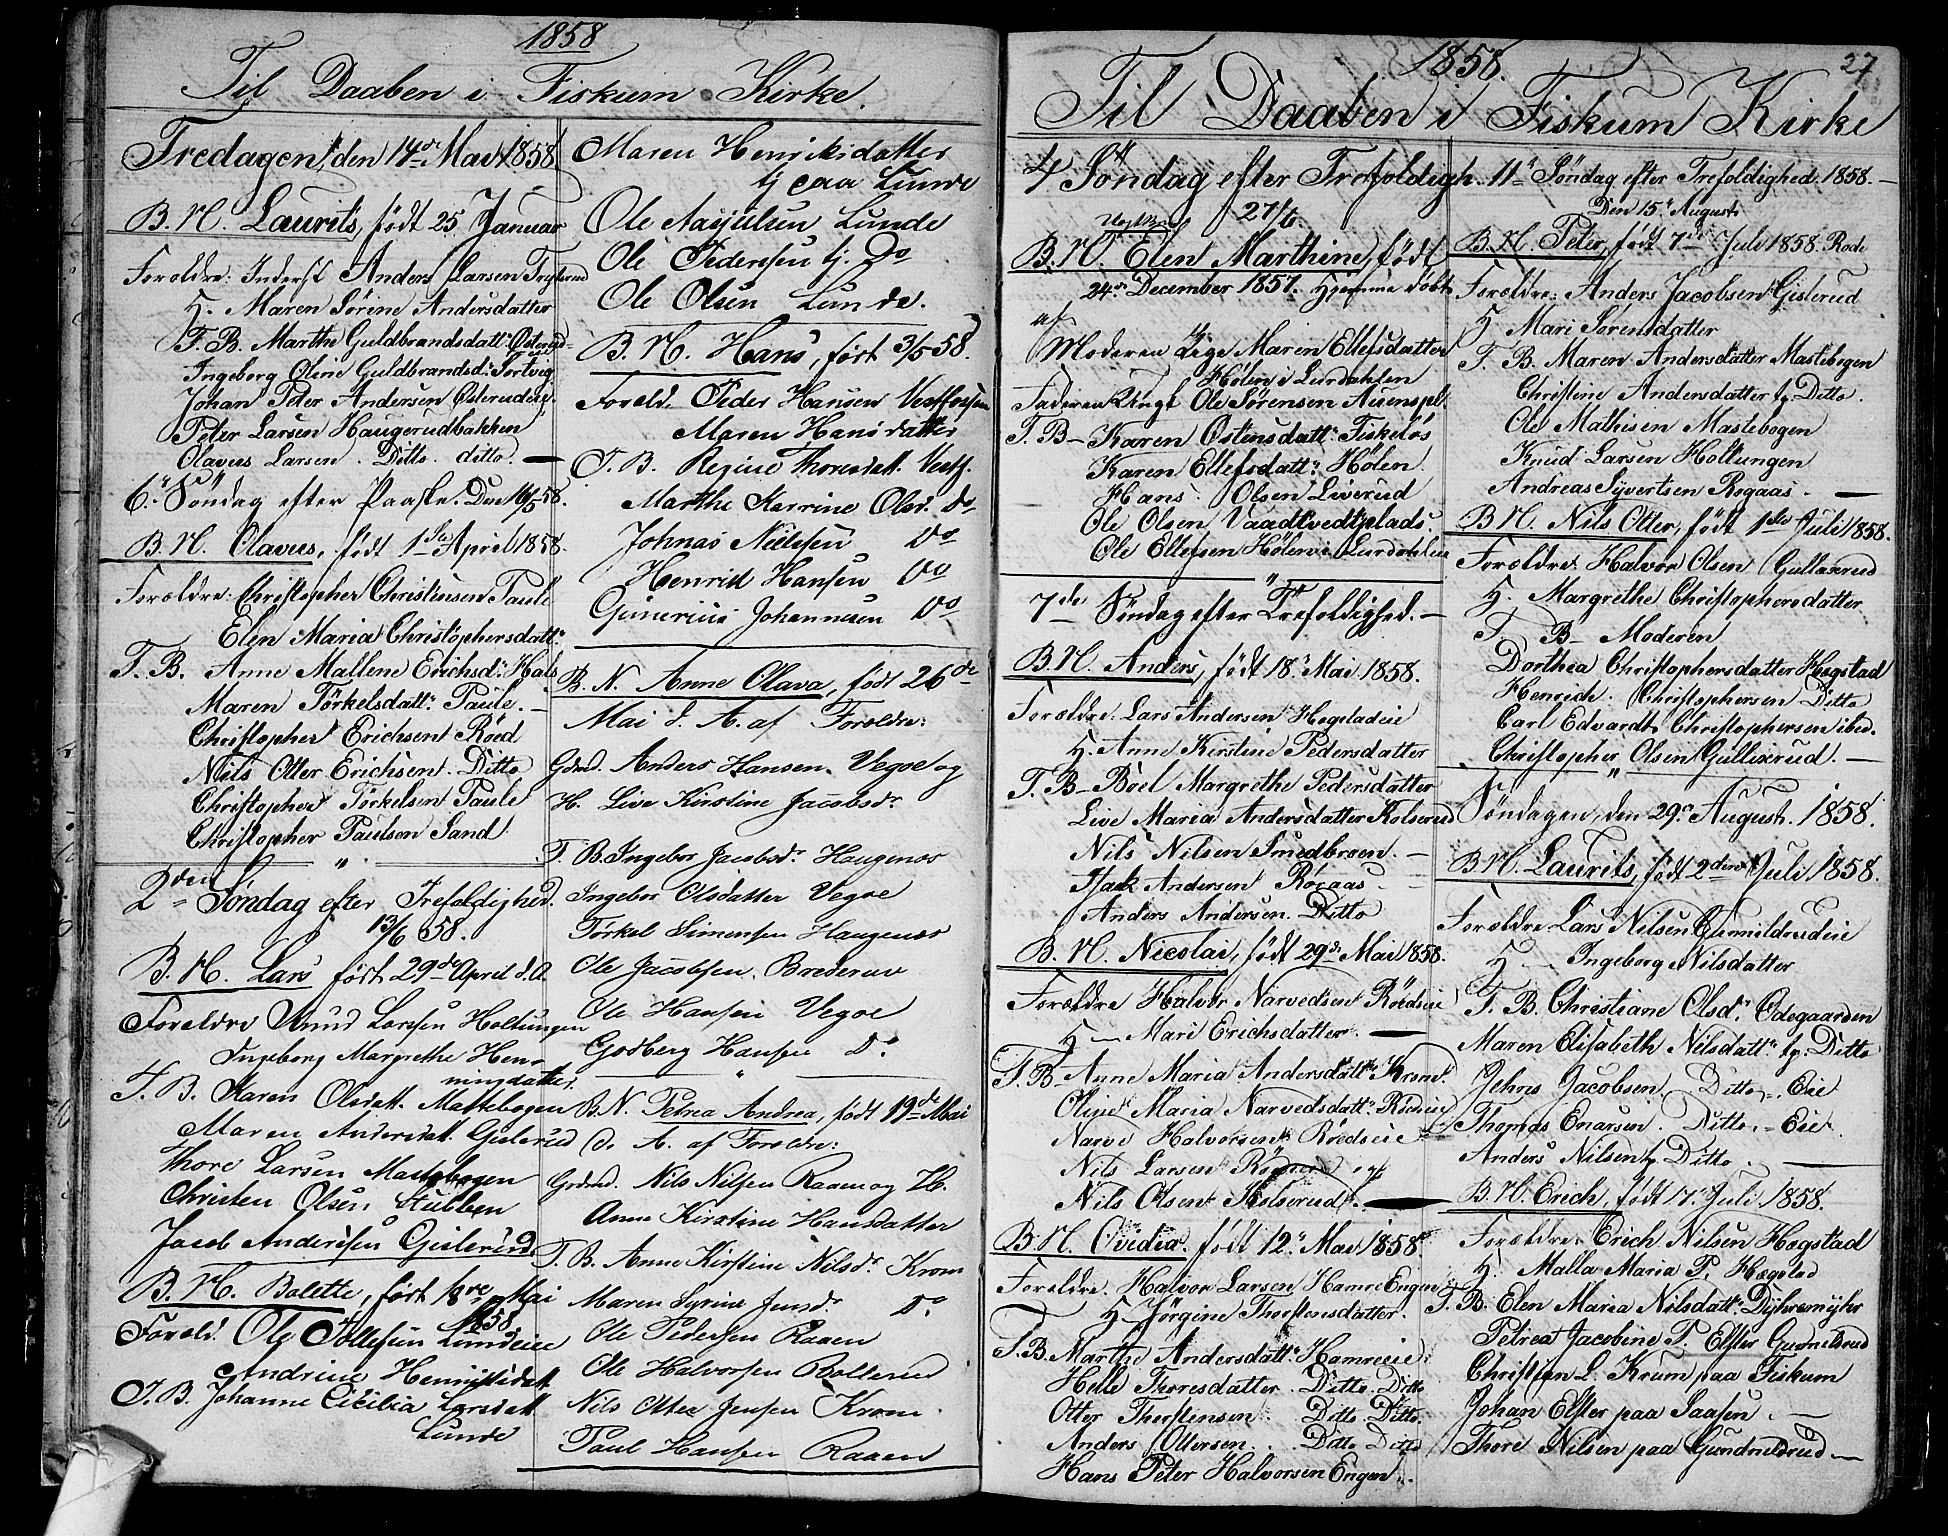 1858
Til Daaben i Fiskum Kirke.
Fredagen, den 14de Mai 1858
B. N. Laurits, født 25 Januar
Forældre: Inderst Anders Larsen
H. Maren Sørene Andersdatter
F. B. Marthe Guldbrandsdatt:
Ingeborg Oline Guldbrandsd:
Johan Peter Andersen
Peter Larsen Haugerudbakken
Olavus Larsen. Ditto. ditto.
6te Søndag efter Paaske. Den 16/5 58.
B. N. Olavus, født 1ste April 1858.
Forældre: Christopher Christensen Paule
Elen Maria Christophersdatt:
F. B. Anne Mallene Erichsd: Hals
Maren Törkelsdatt: Paule.
Christopher Erichsen Röed
Nils Otter Erichsen. Ditto
Christopher Törkelsen Paule
Christopher Paulsen Sand
2den Søndag efter Trefoldighed.
13/6 58.
B. N. Lars født 29de April d. A.
Forældre Knud Larsen Holtungen
Ingeborg Margrethe Hen-
ningdatter
F. B. Karen Olsdatt. Mastebogen
Maren Andersdatt. Gislerud
Thore Larsen Mastebogen
Christen Olsen Stubben
Jacob Andersen Gislerud
B. N. Bolette, født Mai
1858
Foræld. Ole Tollefsen Lundeeie
Andrine Henriksdatt
F. B. Johanne Cicilia Larsdatt
Lunde
Maren Henriksdatter
tj paa Lunde
Ole Lunde
Ole Pedersen tj. Do
Ole Olsen Lunde.
B. N. Hans, født 3/5 58.
Foræld. Peder Hansen Vestfossen
Maren Hansdatter
F. B. Regine Thorsdatt. Vestf.
Marthe Karrine Olsd. Do
Johnas Nielsen Do
Henrik Hansen Do
Gunerius Johannesen Do
B. N. Anne Olava, født 26de
Mai d. A. af Forældre:
Grdmd. Anders Hansen Vegoe og
H. Live Kirstine Jacobsdr
F. B. Ingebor Jacobsdr Haugenæs
Ingebor Olsdatter Vegoe
Törkel Simensen Haugenæs
Ole Jacobsen Brederud
Ole Hansen Vegoe
Godberg Hansen Do
B. N. Petrea Andrea, født 19de Mai
d. A. af Forældre:
Grdmd. Nils Nilsen Raaen og H.
Anne Kirstine Hansdatter
F. B. Anne Kirstine Nilsdr Krom
Maren Syrine Jensdr Do
Ole Pedersen Raaen
Ole Halvorsen Bollerud
Nils Otter Jensen Krom
Paul Hansen Raaen
1858. 27
Til Daaben i Fiskum Kirke
4 Søndag efter Trefoldigh.
27/6
B. N. Elen Marthine, født
24de December 1857. Hjemme döbt
af
Moderen Pige Maren Ellefsdatter
Hölen i Lurdahlen
Faderen Ungk Ole Sörensen
F. B. Karen Ostensdatt: Fiskelös
Karen Ellefsdatt: Hölen
Hans Olsen Liverud
Ole Olsen Vaadtvedtplads
Ole Ellefsen Hölen i Lurdahlen
7de Søndag efter Trefoldighed.
B. N. Anders, født 18. Mai 1858.
Forældre: Lars Andersen Hegstadeie
H. Anne Kirstine Pedersdatter
F. B. Boel Margrethe Pedersdatter
Live Maria Andersdatter Kolserud
Nils Nilsen Smedbroen.
Isak Andersen Rögaas
Anders Andersen Ditto
B. N. Nicolai, født 29de Mai 1858.
Forældre Halvor Narvedsen Röedseie
H. Mari Erichsdatter.
F. B. Anne Maria Andersdatt: Krom.
Oline Maria Narvedsdatt: Rödseie
Narve Halvorsen Röedseie
Nils Larsen og
Nils Olsen Kolserud.
B. N. Ovidia. født 12. Mai 1858
Forældre. Halvor Larsen HamreEngen
H. Jörgine Thorstensdatter.
F. B. Marthe Andersdatt: Hamreeie
Helle Thorresdatter Ditto. Ditto
Otter Thorstensen Ditto Ditto.
Anders Ottersen. Ditto Ditto
Hans Peter Halvorsen Engen.
11te Søndag efter Trefoldighed 1858.
Den 15de August
B. N. Peter, født 7de Juli 1858.
Forældre: Anders Jacobsen Gislerud
H Mari Sørensdatter
F. B. Maren Andersdatter Mastebogen
Christine Andersdatter tj. Ditto.
Ole Mathisen Mastebogen
Knud Larsen Holtungen
Andreas Syvertsen Rogaas.
B. N. Nils Otter, født 1ste Juli 1858.
Forældre: Halvor Olsen Gullixrud
H. Margrethe Christophersdatter
F. B. Moderen
Dorthea Christophersdatter Hægstad
Henrich. Christophersen Ditto
Carl Edvardt Christophersen ibid.
Christopher Olsen Gullixrud.
Søndagen, den 29de August. 1858.
B. N. Laurits, født 2den Juli 1858.
Forældre Lars Nilsen Gunnildrudeie
H Ingeborg Nilsdatter
F. B. Christiane Olsd: Ödegaarden
Maren Elisabeth Nilsdatt: tj. Ditto
Johns Jacobsen. Ditto. Eie
Thomas Enarsen. Ditto. Eie
Anders Nilsen tj. Ditto
B. N. Erich, født 17. Juli 1858.
Forældre. Erich Nilsen Hægstad
H. Malla Maria P. Hægstad
F. B. Elen Maria Nilsdatt: Dyhremyhr
Petrea Jacobine P. Elster Gunnildrud
Christian L. Krum paa Fiskum
Johan Elster paa Saasen.
Thore Nilsen paa Gunnildrud